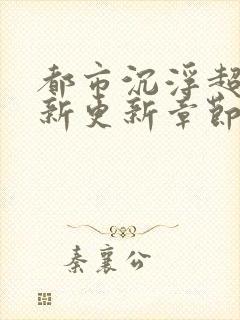 都市沉浮超
新更新章節
秦襄公